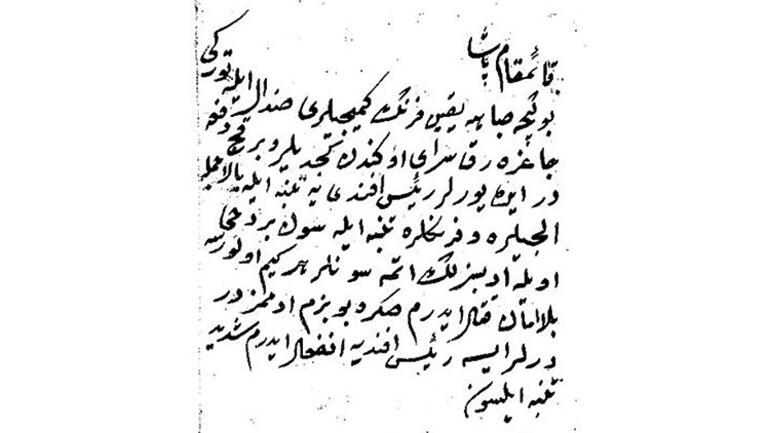 قائممقام پاشا
بو گیجه صباحه یقین فرنك كمیجیلری صندال ایله توركی
چاغره رق سرای اوكندن كچدیلر و بر قچ دفعه
در ایدیورلر رئیس افندی یه تنبه ایله بالجمله
ایلچیلره و فرنكلره تنبه ایله سون بر دخی
اویله ادبسزلك اتمه سونلر هر كیم اولورسه
بلا امان قتل ایدرم صكره بو بزم ادممزدر
درلر ایسه رئیس افندیه انفعال ایدرم شدید
تنبه ایلسون